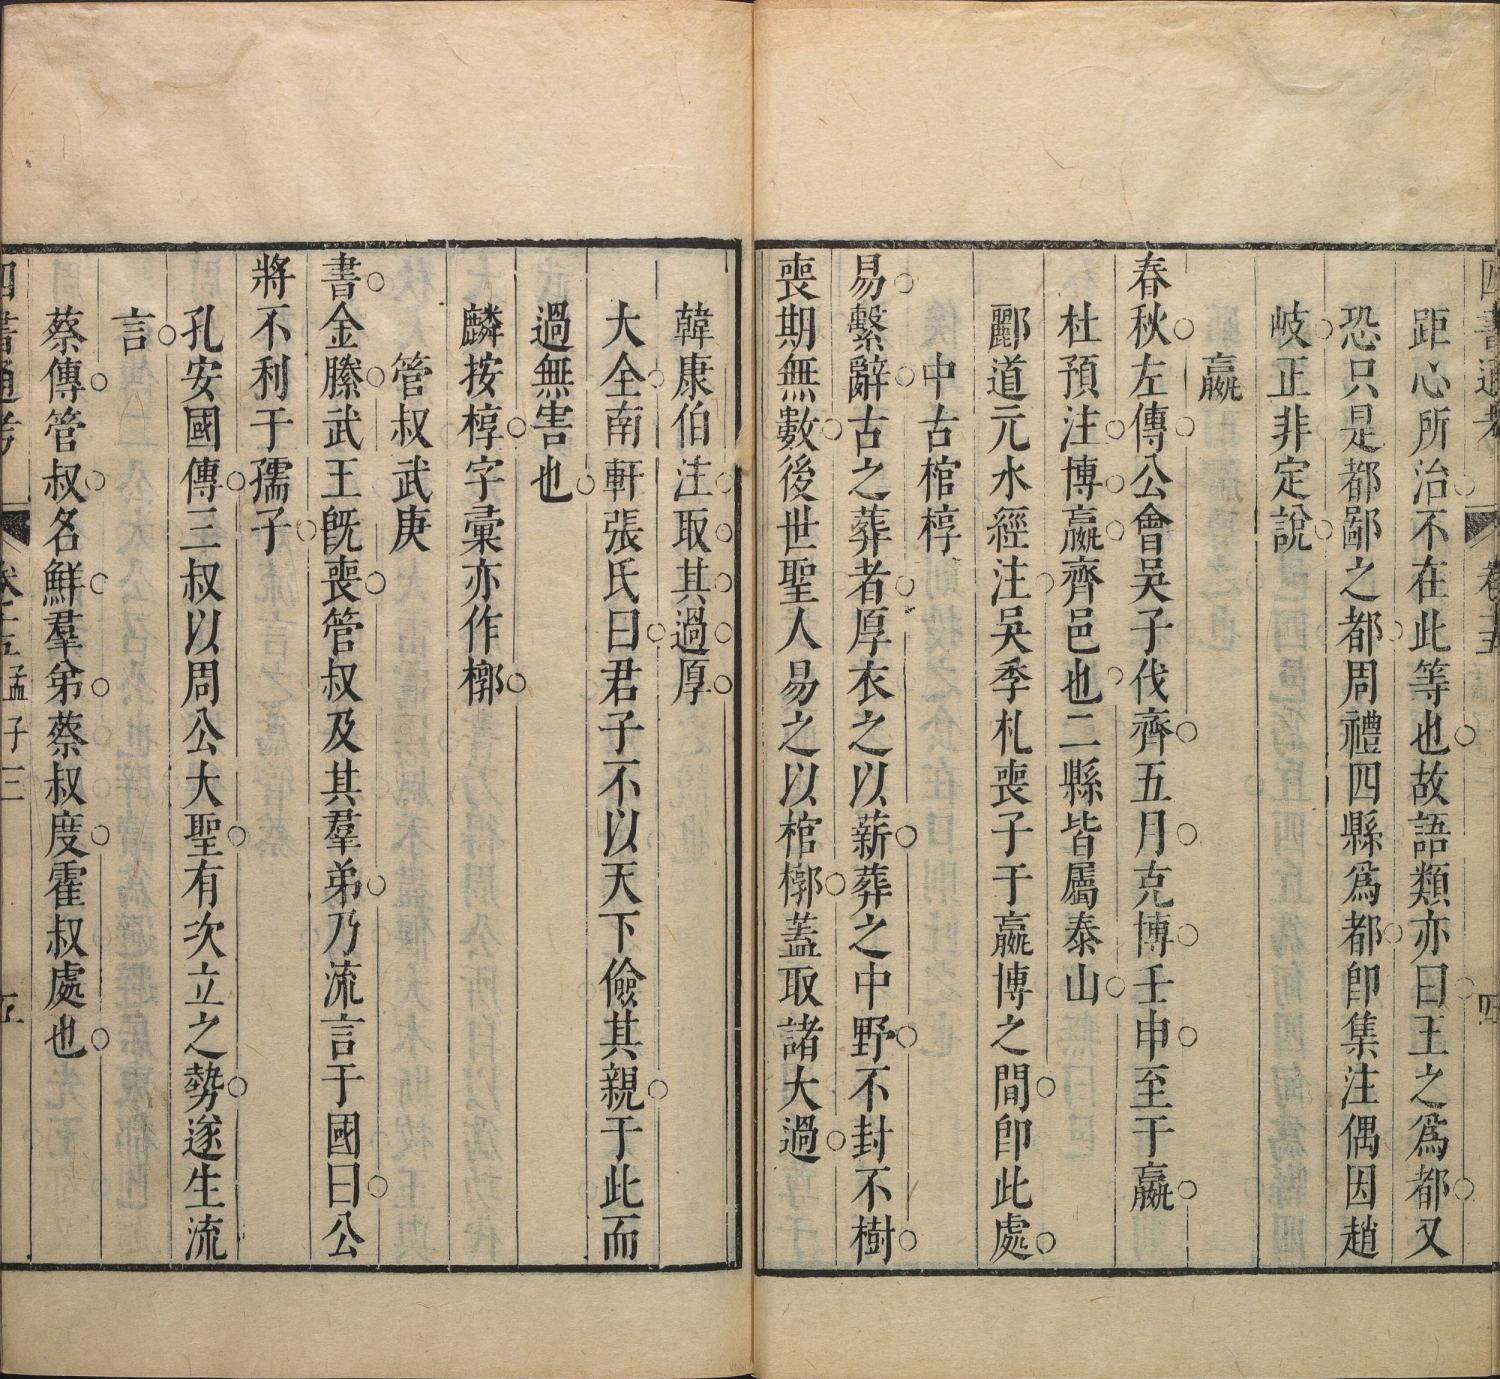 四書通考 卷十五 四
距心所治不在此等也故語類亦曰王之爲都又
恐只是都鄙之都周禮四縣爲都卽集注偶因趙
岐正非定說
嬴
春秋左傳公會吳子伐齊五月克博壬申至于嬴
杜預注博嬴齊邑也二縣皆屬泰山
酈道元水經注吳季札喪子于嬴博之間卽此處
中古棺椁
易繫辭古之葬者厚衣之以薪葬之中野不封不樹
喪期無數後世聖人易之以棺槨蓋取諸大過
韓康伯注取其過厚
大全南軒張氏曰君子不以天下儉其親于此而
過無害也
麟按椁字彙亦作槨
管叔武庚
書金縢武王旣喪管叔及其羣弟乃流言于國曰公
將不利于孺子
孔安國傳三叔以周公大聖有次立之勢遂生流
言
蔡傳管叔名鮮羣弟蔡叔度霍叔處也
四書通考 卷十五孟子三 五